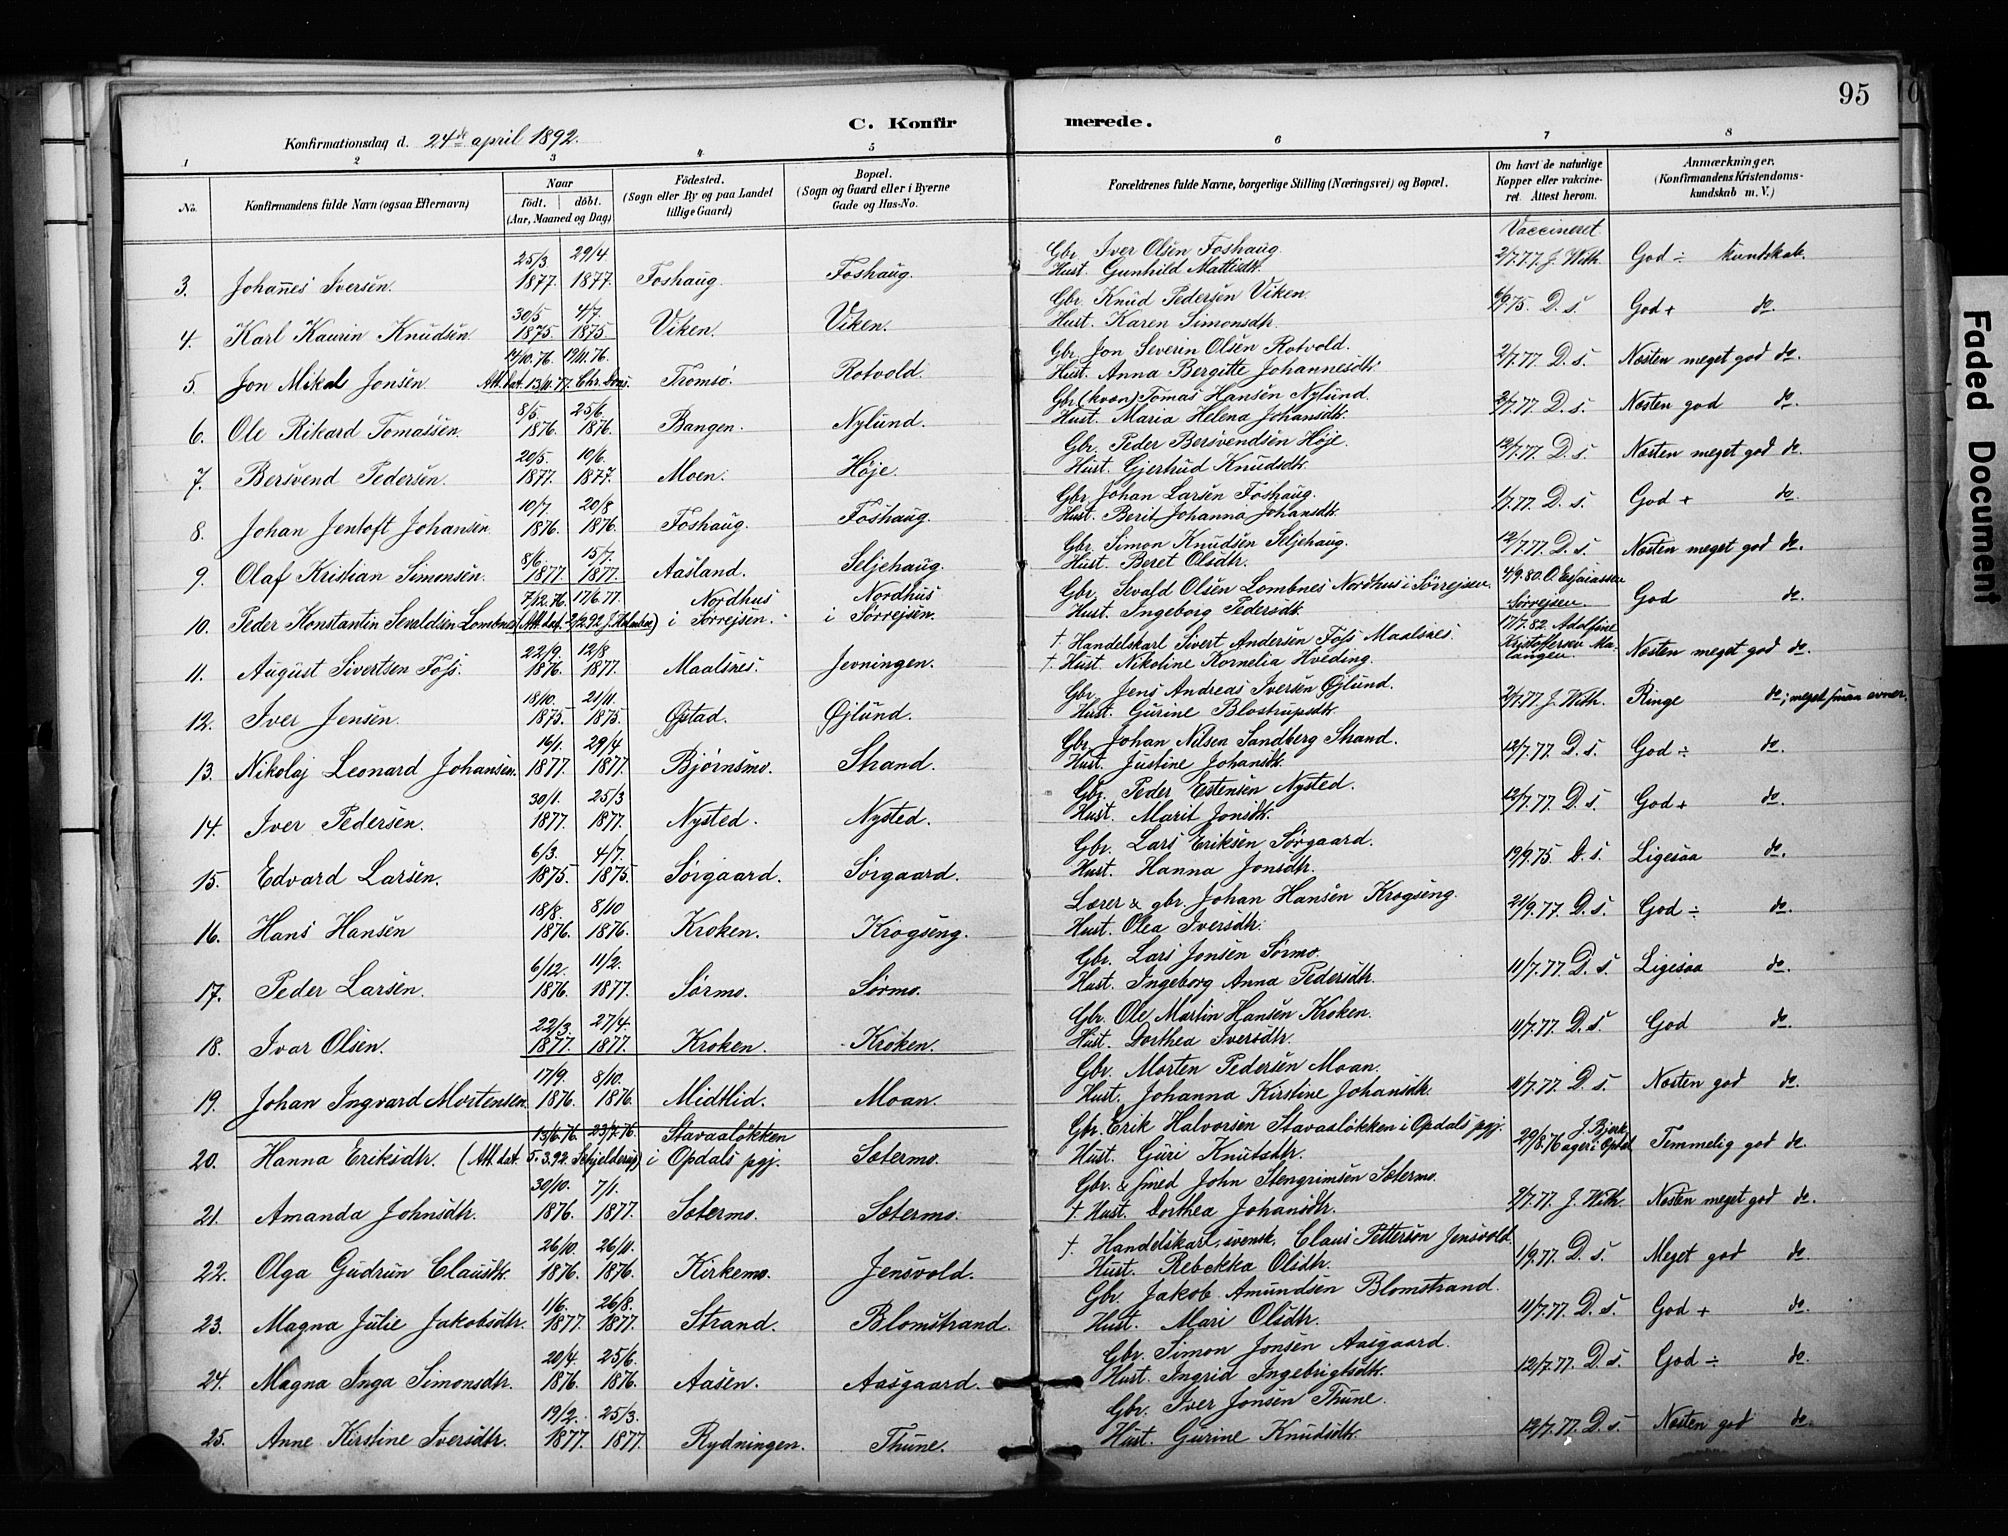 95
C. Konfirmerede.
Konfirmationsdag d. 24de april 1892.
1 2 3 4 5 6 7 8
No.
Konfirmandens fulde Navn (ogsaa Efternavn)
Naar
födt. döbt.
(Aar, Maaned og Dag)
Födested.
(Sogn eller By og paa Landet tillige Gaard)
Bopæl.
(Sogn og Gaard eller i Byerne Gade og Hus-No.
Forældrenes fulde Navne, borgerlige Stilling (Næringsvei) og Bopæl.
Om havt de naturlige Kopper eller vaccineret. Attest herom.
Anmærkninger.
(Konfirmandens Kristendomskundskab m. V.)
Vaccineret
3. Johannes Iversen. 25/3 1877. 29/4 1877. Foshaug. Foshaug. Gbr. Iver Olsen Foshaug. 2/7.77. J. With. God ÷ kundskab.
Hust. Gunhild Mattisdtr.
4. Karl Kaurin Knudsen 30/5 1875. 4/7. 1875 Viken. Viken. Gbr. Knud Pedersen Viken. 6/9.75. D. s. God + do.
Hust. Karen Simonsdtr.
5. Jon Mikal Jonsen. 14/10.76. 19/11.76. Att. dat. 13/11.77. Chr. Tromsø. Rotvold. Gbr. Jon Severin Olsen Rotvold. 2/7.77. D. s. Næsten meget god do.
Hust. Anna Bergitte Johannesdtr.
6. Ole Rikard Tomassen. 8/5. 1876. 25/6. 1876. Bangen. Nylund. Gbr. (kvæn) Tomas Hansen Nylund. 2/7.77. D. s. Næsten god do.
Hust. Maria Helena Johansdtr.
7. Bersvend Pedersen. 20/5. 1877. 10/6. 1877. Moen. Høje. Gbr. Peder Bersvendsen Høje. 12/7.77. D. s. Næsten meget god do.
Hust. Gjertrud Knudsdtr.
8. Johan Jentoft Johansen 10/7. 1876. 20/8 1876. Foshaug. Foshaug. Gbr. Johan Larsen Foshaug. 1/7.77. D. s. God + do.
Hust. Berit Johanna Johansdtr.
9. Olaf Kristian Simonsen. 8/6. 1877. 15/7. 1877. Aasland. Seljehaug. Gbr. Simon Knudsen Seljehaug. 12/7.77. D. s. Næsten meget god do.
Hust. Beret Olsdtr.
10. Peder Konstantin Sevaldsen Lombnes (Att. dat. 2/2.92 J. Holmboe) 7/12.76. 17/6.77. Nordhus i Sørrejsen. Nordhus i Sørrejsen. Gbr. Sevald Olsen Lombnes Nordhus i Sørrejsen. 4/9.80. O. Esaiassen Sørrejsen. God do.
Hust. Ingeborg Pedersdtr.
11. August Sivertsen Foss. 22/9. 1876. 12/8 1877. Maalsnes. Jevningen. † Handelskarl Sivert Andersen Foss Maalsnes. 17/7.82. Adolfine Kristoffersen Malangen. Næsten meget god do.
† Hust. Nikoline Kornelia Hveding.
12. Iver Jensen. 18/10. 1875. 21/11. 1875. Øpstad. Øjlund. Gbr. Jens Andreas Iversen Øjlund. 20/7.77. J. With. Ringe do; meget smaa evner.
Hust. Gurine Blostrupsdtr.
13. Nikolaj Leonard Johansen. 16/1. 1877. 29/4 1877. Bjørnsmo. Strand. Gbr. Johan Nilsen Sandberg Strand. 12/7.77. D. s. God ÷ do.
Hust. Justine Johansdtr.
14. Iver Pedersen. 30/1. 1877. 25/3 1877. Nysted. Nysted. Gbr. Peder Estensen Nysted. 12/7.77. D. s. God + do.
Hust. Marit Jonsdtr.
15. Edvard Larsen. 6/3. 1875. 4/7. 1875. Sørgaard. Sørgaard. Gbr. Lars Eriksen Sørgaard. 19/9.75. D. s. Ligesaa do.
Hust. Hanna Jonsdtr.
16. Hans Hansen 18/8. 1876. 8/10 1876. Kroken. Krogseng. Lærer & gbr. Johan Hansen Krogseng. 21/9.77. D. s. God ÷ do.
Hust. Olea Iversdtr.
17. Peder Larsen. 6/12. 1876. 11/2. 1877. Sørmo. Sørmo. Gbr. Lars Jonsen Sørmo. 11/7.77. D. s. Ligesaa do.
Hust. Ingeborg Anna Pedersdtr.
18. Ivar Olsen. 22/3. 1877. 27/4. 1877. Kroken. Kroken. Gbr. Ole Martin Hansen Kroken. 11/7.77. D. s. God do.
Hust. Dorthea Iversdtr.
19. Johan Ingvard Mortensen. 17/9. 1876. 8/10. 1876. Midtlid. Moan. Gbr. Morten Pedersen Moan. 11/7.77. D. s. Næsten god do.
Hust. Johanna Kirstine Johansdtr.
20. Hanna Eriksdtr. (Att. dat. 5.3.92. Schjelderup) 13/6.76. 23/7.76. Stavaaløkken i Opdals pgj. Sætermo. Gbr. Erik Halvorsen Stavaaløkken i Opdals pgj. 29/8.76 J. Bjerkager i Opdal Temmelig god do.
Hust. Guri Knutsdtr.
21. Amanda Johnsdtr. 30/10. 1876. 7/1. 1877. Sætermo. Sætermo. Gbr. & smed John Stengrimsen Sætermo. 9/7.77. J. With. Næsten meget god do.
† Hust. Dorthea Johansdtr.
22. Olga Gudrun Clausdtr. 26/10. 1876. 26/11. 1876. Kirkemo. Jensvold. † Handelskarl, svensk, Claus Petterson Jensvold. 1/9.77. D. s. Meget god do.
Hust. Rebekka Olsdtr.
23. Magna Julie Jakobsdtr. 1/6. 1877. 26/8. 1877. Strand. Blomstrand. Gbr. Jakob Amundsen Blomstrand. 11/7.77. D. s. God + do.
Hust. Mari Olsdtr.
24. Magna Inga Simonsdtr. 20/4. 1876. 25/6. 1876. Aasen. Aasgaard. Gbr. Simon Jonsen Aasgaard. 12/7.77. D. s. God ÷ do.
Hust. Ingrid Ingebrigtsdtr.
25. Anne Kirstine Iversdtr. 19/2. 1877. 25/3. 1877. Rydningen. Thune. Gbr. Iver Jonsen Thune. 12/7.77. D. s. Næsten god do.
Hust. Gurine Knudsdtr.
Faded Document